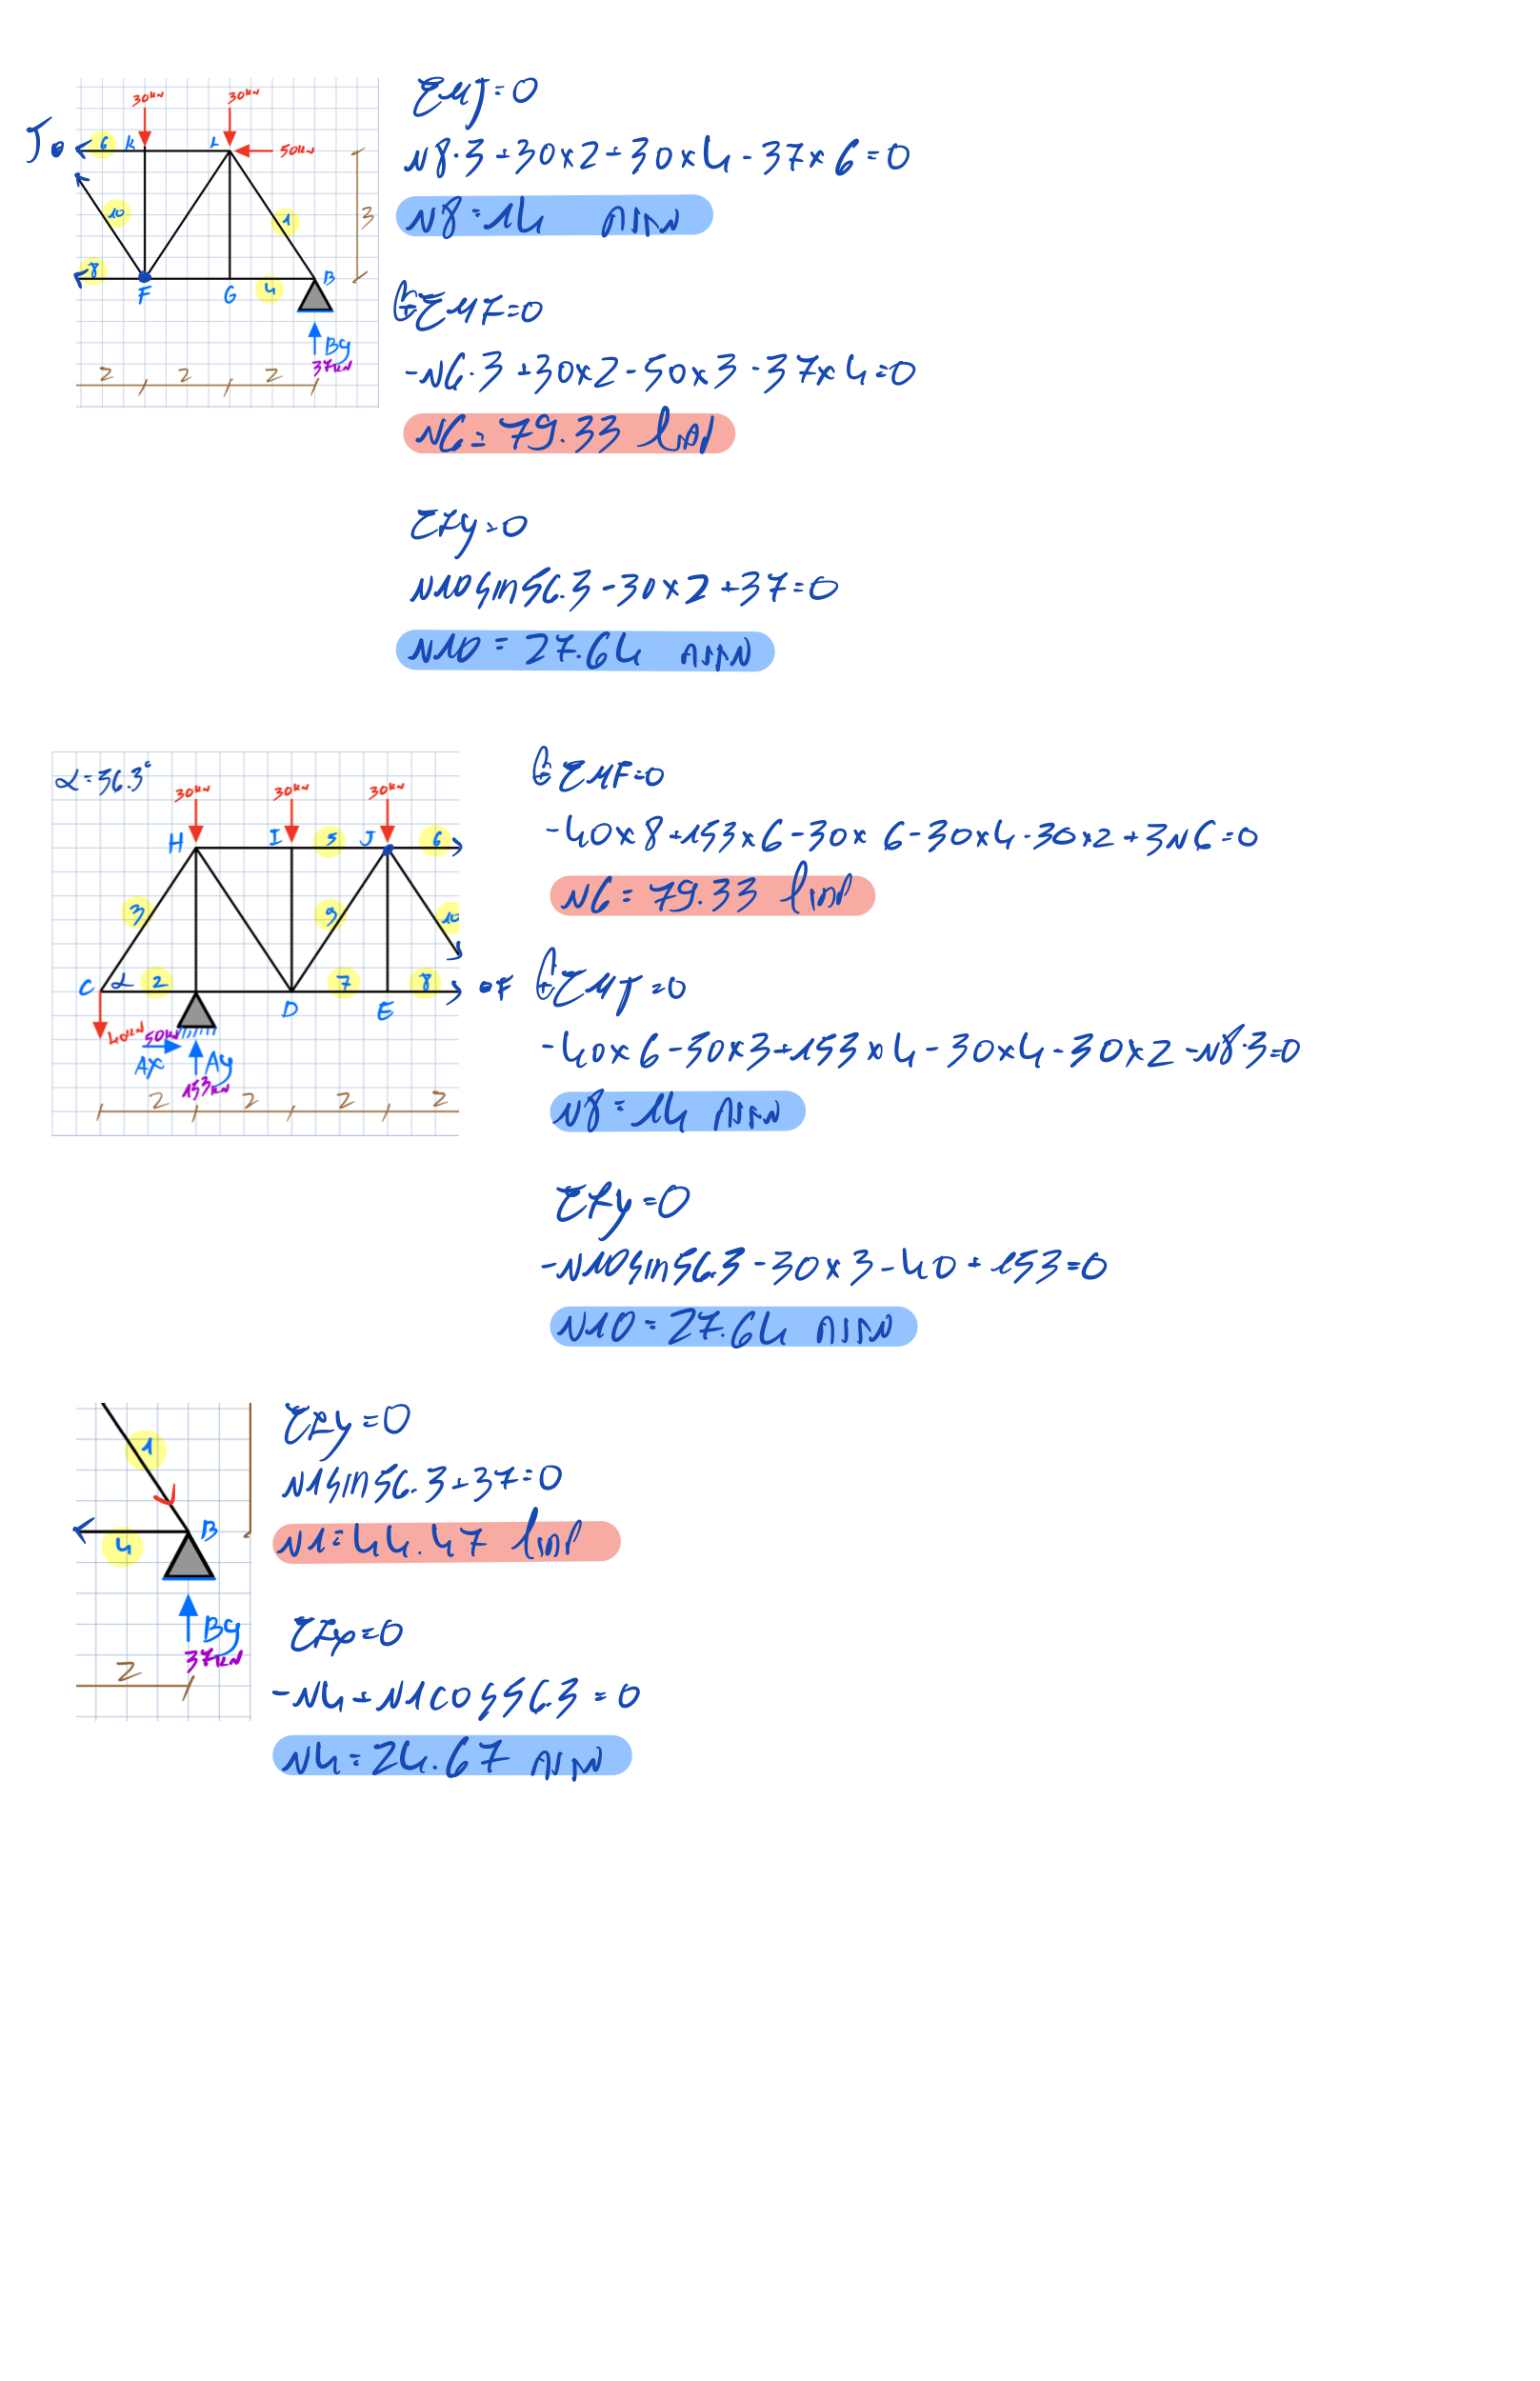 30kN 30kN
J 6 K L 50kN
10 1 3
8 F G 4 B
By
37kN
2 2 2
ΣMJ=0
N8·3+30×2+30×4-37×6=0
N8=14
ΣMF=0
-N6·3+30×2-50×3-37×4=0
N6=79.33
ΣFy=0
N10sin56.3-30×2+37=0
N10=27.64
α=56.3°
30kN 30kN 30kN
H I 5 J 6
3 9 10
C α 2 D 7 E 8
40kN 50kN
Ax Ay
153kN
2 2 2 2
ΣMF=0
-40×8+153×6-30×6-30×4-30×2+3N6=0
N6=79.33
•F ΣMJ=0
-40×6-50×3+153×4-30×4-30×2-N8·3=0
N8=14
ΣFy=0
-N10sin56.3-30×3-40+153=0
N10=27.64
1
4 B
By
37kN
2
ΣFy=0
N1sin56.3+37=0
N1=44.47
ΣFx=0
-N4+N1cos56.3=0
N4=24.67